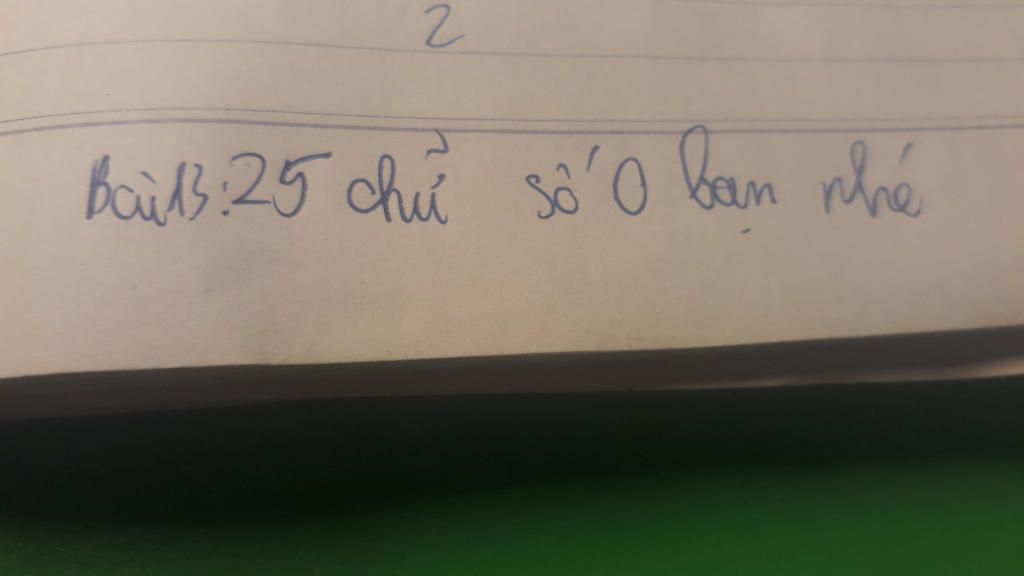 2
Bài 13: 25 chữ số 0 bạn nhé